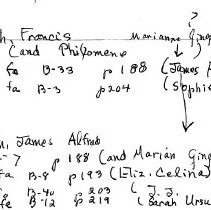 h, Francis Marianne Ging
(and Philomene
fa B-33 p 188 (James A
fa B-3 p 204 (Sophie
, James Alfred
-7 p 188 (and Marian Ging
fa B-8 p 193 (Eliz. Celina)
B-40 203 ( J. J.
fe B-12 p 219 (Sarah Ursu